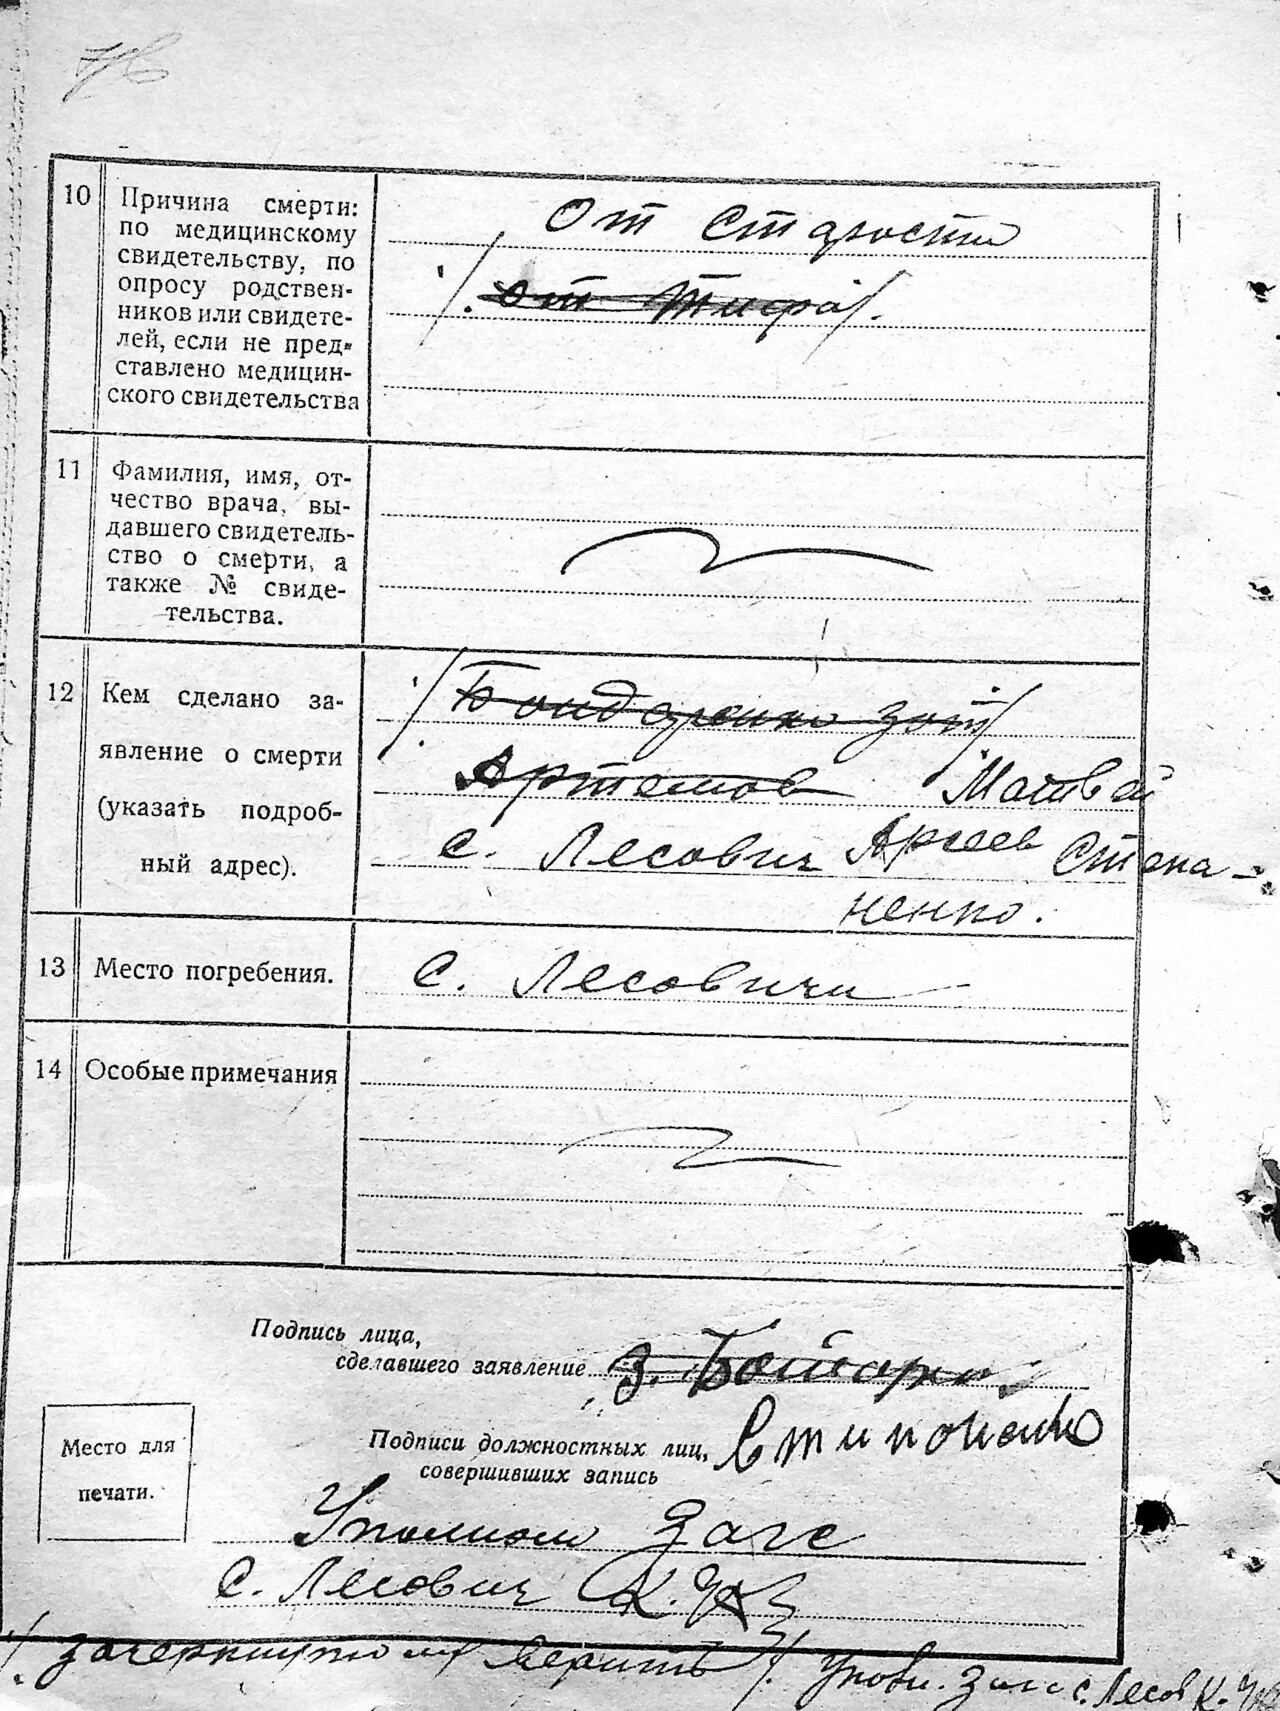 10
Причина смерти:
по медицинскому
свидетельству, по
опросу родствен-
ников или свидете-
лей, если не пред-
ставлено медицин-
ского свидетельства
От Старости
от Тифа
11
Фамилия, имя, от-
чество врача, вы-
давшего свидетель-
ство о смерти, а
также № свиде-
тельства.
12
Кем сделано за-
явление о смерти
(указать подроб-
ный адрес).
Бондаренко
Артемов Матвей
с. Лесович Степа-
ненко.
13
Место погребения.
С. Лесовичи
14
Особые примечания
Подпись лица,
сделавшего заявление
Подписи должностных лиц,
совершивших запись
Место для
печати.
Уполном Загс
С. Лесович
зачеркнутому верить